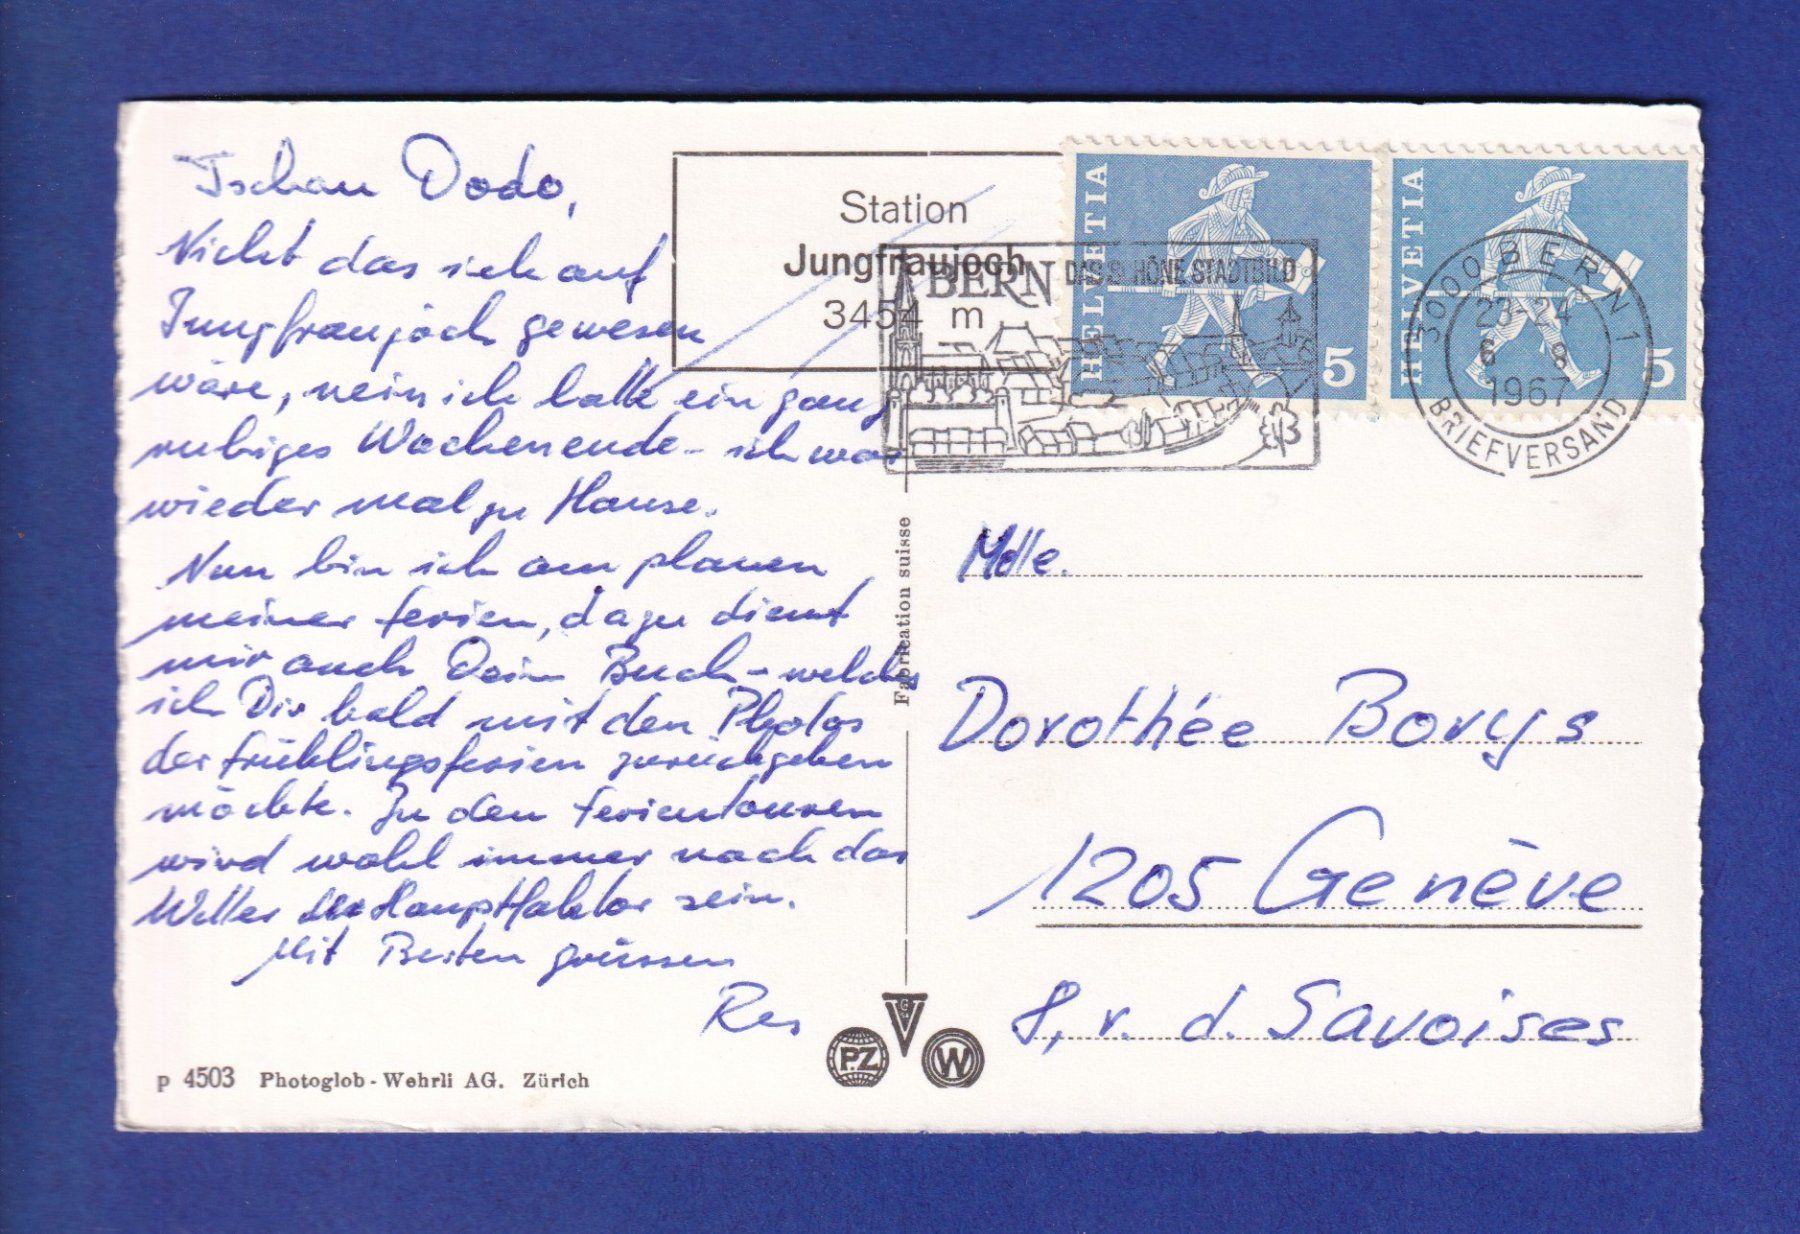 Tschau Dodo,
Nicht das ich auf
Jungfraujoch gewesen
wäre, nein ich hatte ein ganz
ruhiges Wochenende - ich war
wieder mal zu Hause.
Nun bin ich am planen
meiner Ferien, dazu dient
mir auch Dein Buch - welches
ich Dir bald mit den Photos
der Frühlingsferien zurückgeben
möchte. Zu den Ferientouren
wird wohl immer noch das
Wetter der Hauptfaktor sein.
Mit Besten grüssen
Res
p 4503 Photoglob - Wehrli AG. Zürich
Station
Jungfraujoch
3454 m
BERN DAS SCHÖNE STADTBILD
HELVETIA 5
HELVETIA 5
3000 BERN 1
23-24
6 8
1967
BRIEFVERSAND
Fabrication suisse
Mdlle.
Dorothée Borys
1205 Genève
8, r. d. Savoises
P.Z
VGSA
W